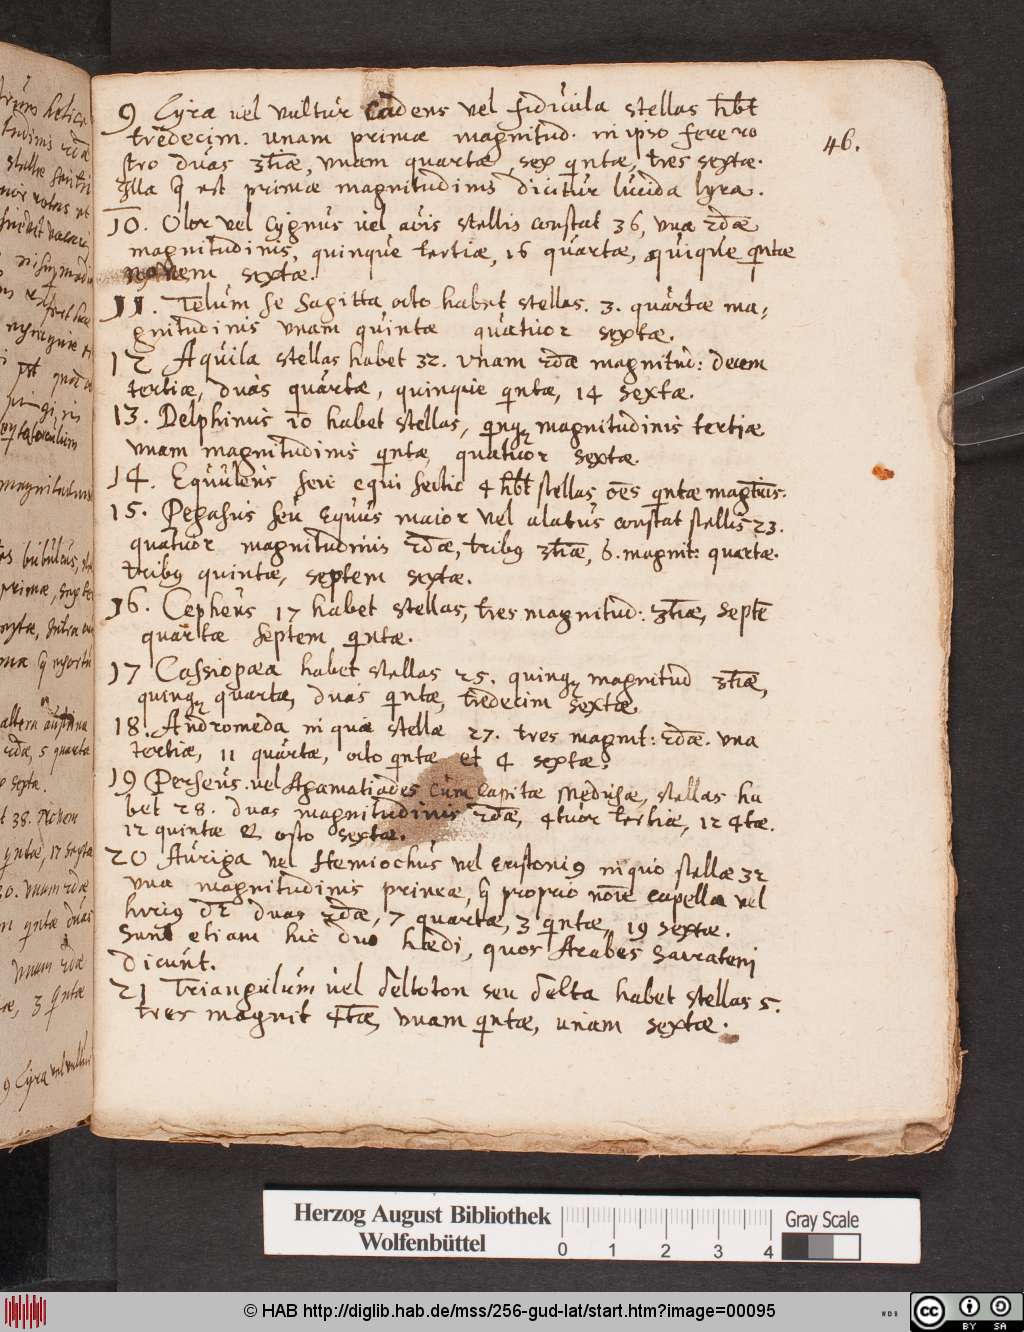 46.
9 Lyra vel vultur cadens vel fidicula stellas hñt
tredecim. unam primæ magnitud. in ipso fere ro
stro duas 3tiæ, vnam quartæ, sex qintæ, tres sextæ.
Illa q̃ est primæ magnitudinis dicitur lucida lyra.
10. Olor vel Cygnus vel avis stellis constat 36, vna 2dæ
magnitudinis, quinque tertiæ, 16 quartæ, quique qintæ
novem sextæ.
11. Telum se Sagitta octo habet stellas. 3. quartæ ma-
gnitudinis vnam quintæ quatuor sextæ.
12 Aquila stellas habet 32. vnam 2dæ magnitud: decem
tertiæ, duas quartæ, quinque qintæ, 14 sextæ.
13. Delphinus 10 habet stellas, qinqꝫ magnitudinis tertiæ
vnam magnitudinis qintæ, quatuor sextæ.
14. Equuleus seu equi sectio 4 hñt stellas oẽs qintæ magtinis.
15. Pegasus seu Equus maior vel alatus constat stellis 23.
quatuor magnitudinis 2dæ, tribꝰ 3tiæ, 6. magnit: quartæ.
tribꝰ quintæ, septem sextæ.
16. Cepheus 17 habet stellas, tres magnitud: 3tiæ, septẽ
quartæ septem qintæ.
17 Cassiopæa habet stellas 25. quinqꝫ magnitud 3tiæ,
quinqꝫ quartæ, duas qintæ, tredecim sextæ
18. Andromeda in qua stellæ 27. tres magnit: 2dæ. vna
tertiæ, 11 quartæ, octo qintæ et 4 sextæ.
19 Perseus vel Agamatiades cum capitæ Medusæ, stellas ha
bet 28. duas magnitudinis 2dæ, 4tuor tertiæ, 12 4tæ.
12 quintæ & octo sextæ.
20 Auriga vel Hemiochus vel Eristoniꝰ in quo stellæ 32
vna magnitudinis primæ, q̃ proprio noĩe capella vel
hircus dr̃ duas 2dæ, 7 quartæ, 3 qintæ, 19 sextæ.
Sunt etiam hic duo hædi, quos Arabes Sarrateni
dicunt.
21 Triangulum vel deltoton seu delta habet stellas 5.
tres magnit 4tæ, vnam qintæ, unam sextæ.
Herzog August Bibliothek
Wolfenbüttel
0 1 2 3 4
Gray Scale
© HAB http://diglib.hab.de/mss/256-gud-lat/start.htm?image=00095
WDB
cc BY SA